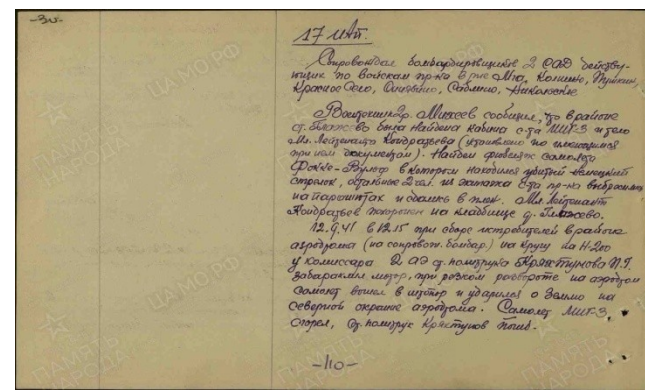 -3и-
17 ИАП.
Сопровождал бомбардировщиков 2 САД действу-
ющих по войскам пр-ка в р-не Мга, Колпино, Пушкин,
Красное Село, Саблино, Никольское
Воентехник 2р. Михеев сообщил, что в районе
ст. Глажево была найдена кабина с-та МИГ-3 и тело
Мл. Лейтенанта Кондратьева (установлено по имеющимся
при нем документам). Найден фюзеляж самолета
Фокке-Вульф в котором находился убитый немецкий
стрелок, остальные 2 чел. из экипажа с-та пр-ка выбросились
на парашютах и сдались в плен. Мл. Лейтенант
Кондратьев похоронен на кладбище д. Глажево.
12.9.41 в 12.15 при сборе истребителей в районе
аэродрома (на сопровож. бомбар.) на кругу на Н-200
у комиссара 2 АЭ ст. политрука Кряктунова П.Г.
забарахлил мотор, при резком развороте на аэродром
самолет вошел в штопор и ударился о землю на
северной окраине аэродрома. Самолет МИГ-3
сгорел, ст. политрук Кряктунов погиб.
-110-
ПАМЯТЬ НАРОДА
ЦАМО.РФ